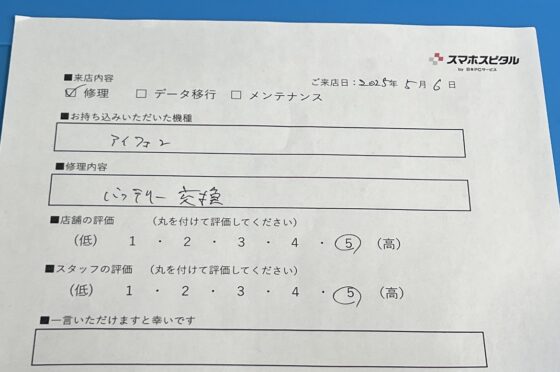 スマホスピタル
by 日本PCサービス
■来店内容
ご来店日：2025年 5月 6日
☑ 修理 □ データ移行 □ メンテナンス
■お持ち込みいただいた機種
アイフォン
■修理内容
バッテリー 交換
■店舗の評価 （丸を付けて評価してください）
（低） 1 ・ 2 ・ 3 ・ 4 ・ 5 （高）
■スタッフの評価 （丸を付けて評価してください）
（低） 1 ・ 2 ・ 3 ・ 4 ・ 5 （高）
■一言いただけますと幸いです